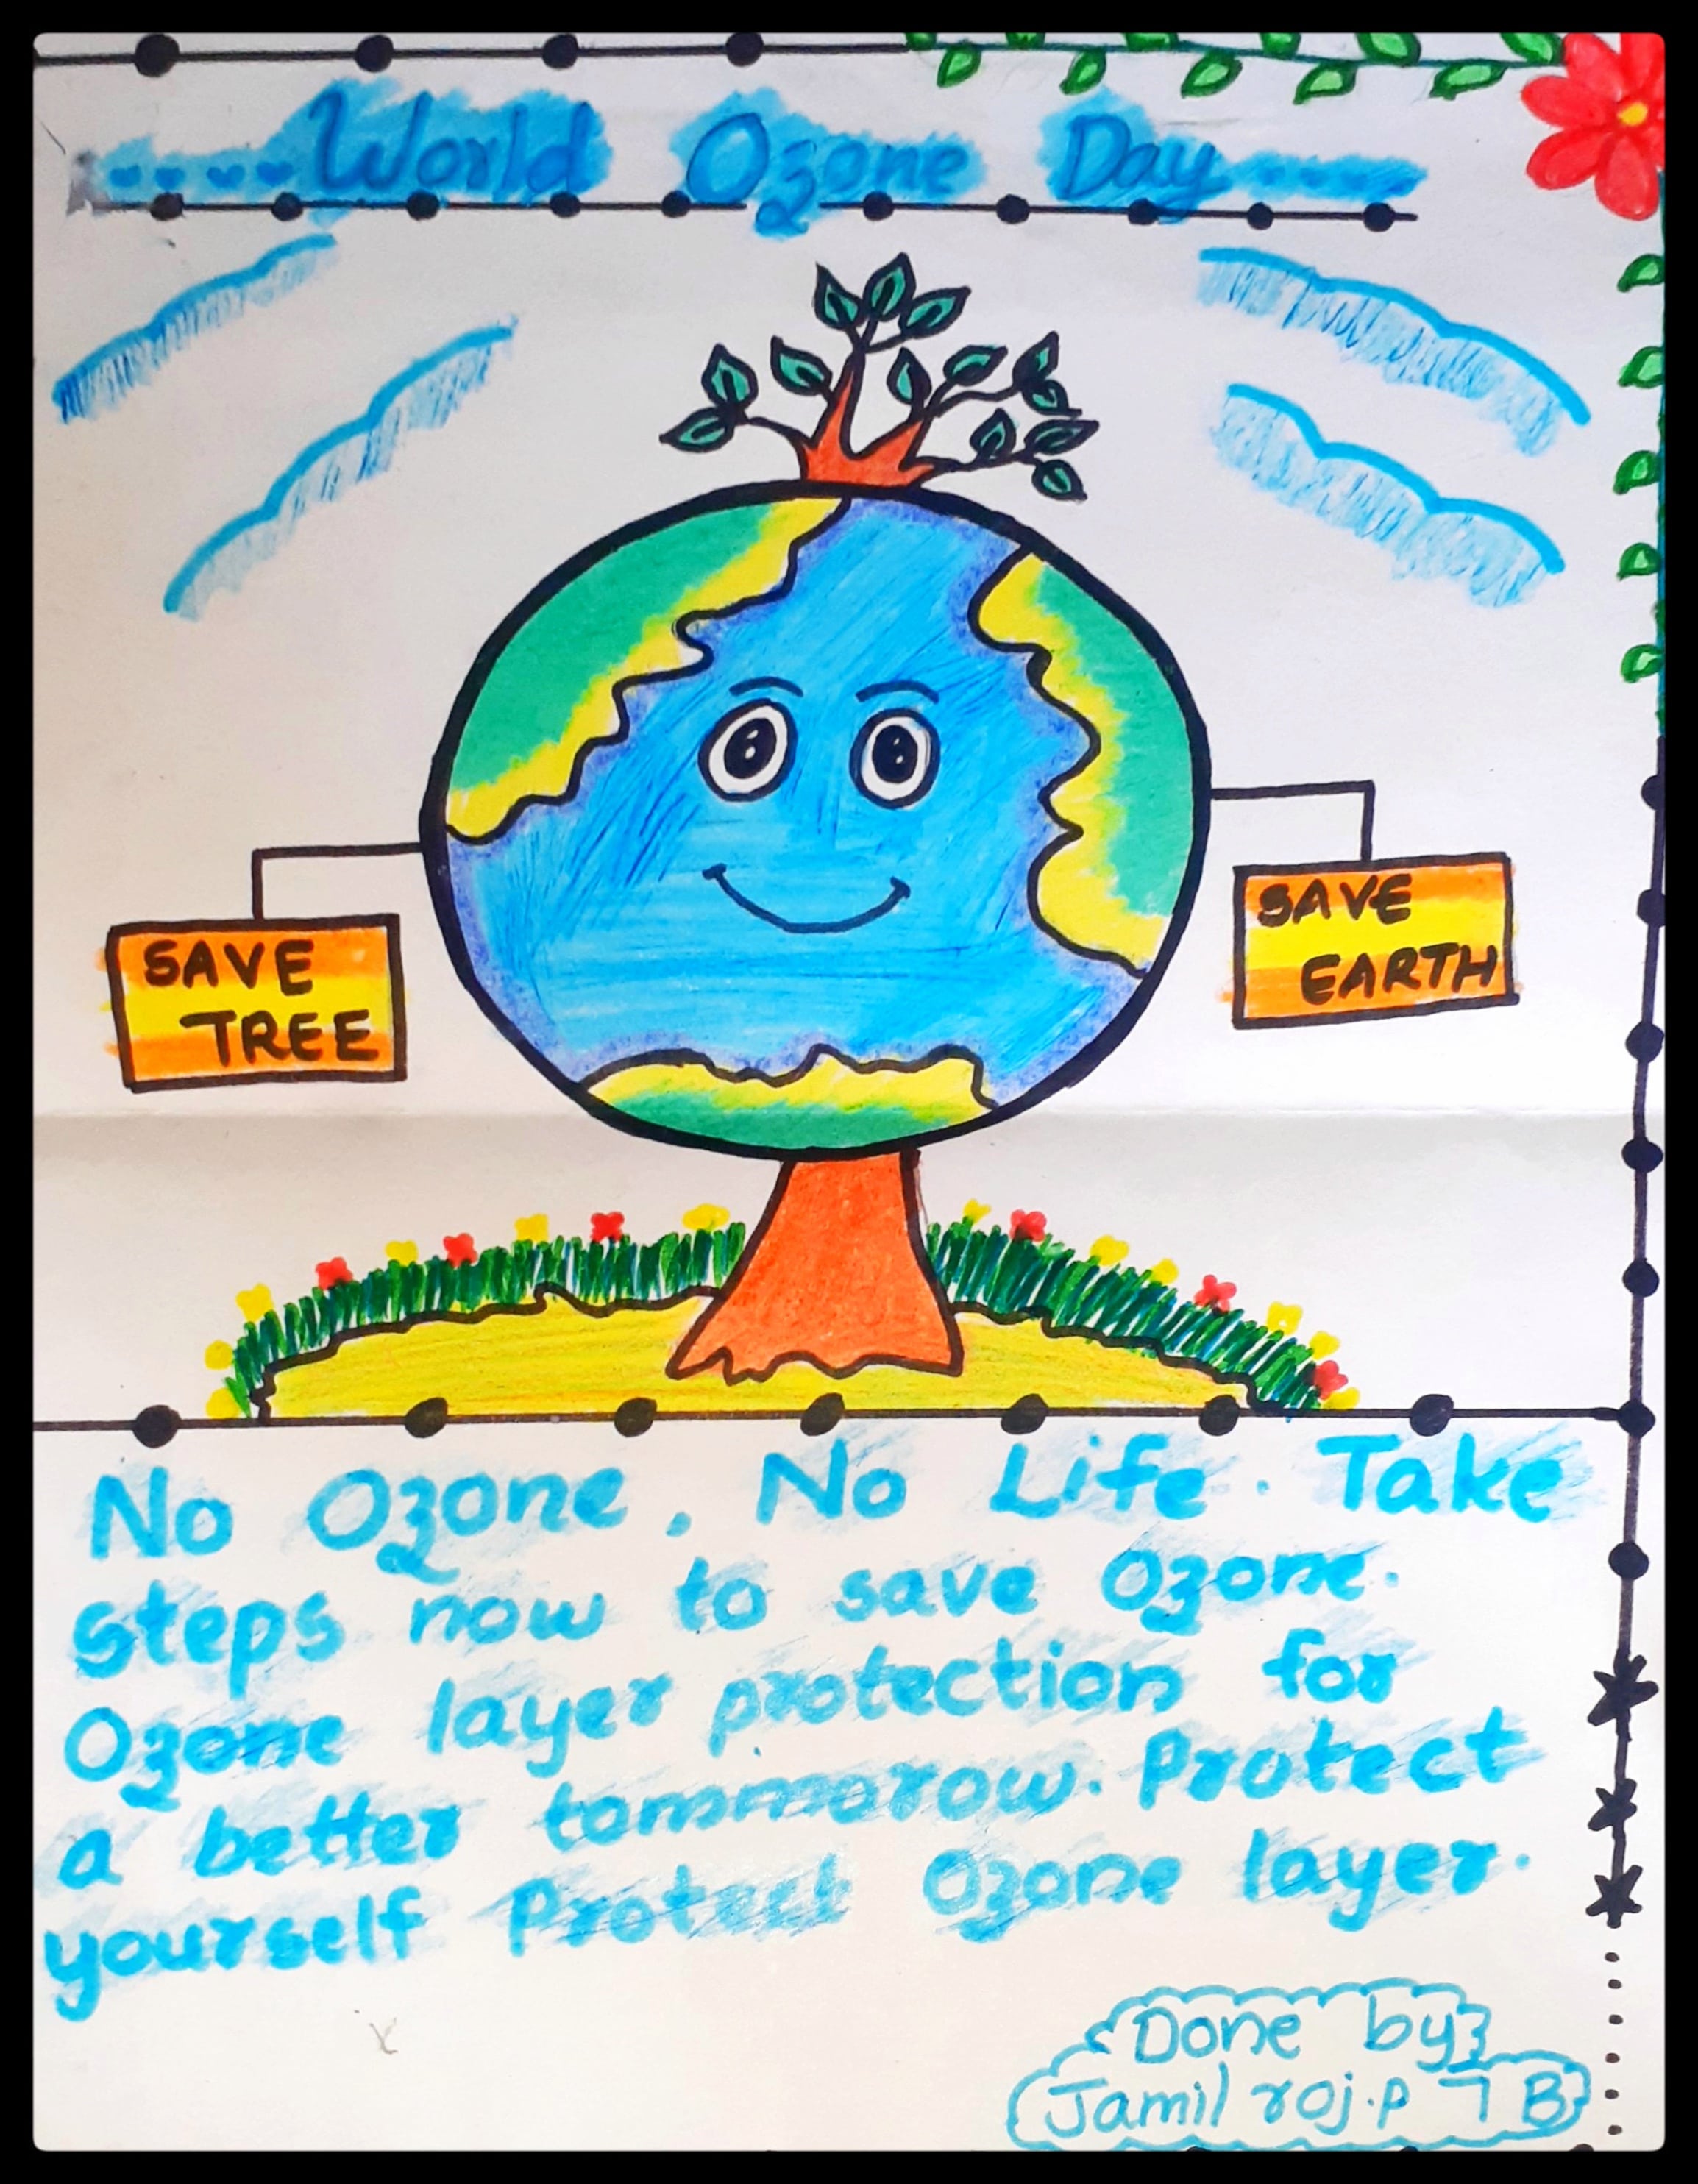 World Ozone Day
SAVE
TREE
SAVE
EARTH
No Ozone, No Life. Take
steps now to save Ozone.
Ozone layer protection for
a better tommorow. Protect
yourself Protect Ozone layer.
Done by
Jamil roj.p 7 B